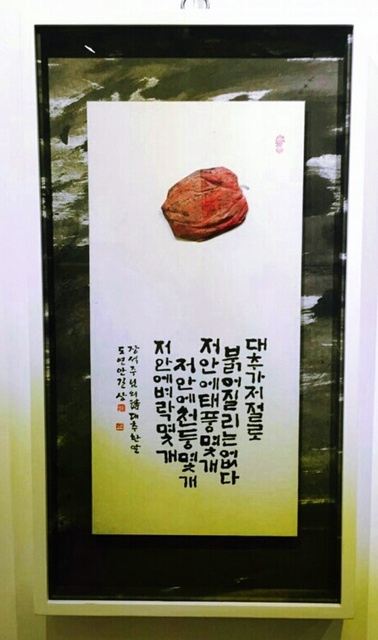 대추가저절로
붉어질리는없다
저안에태풍몇개
저안에천둥몇개
저안에벼락몇개
장석주님의詩대추한알
도연안길상